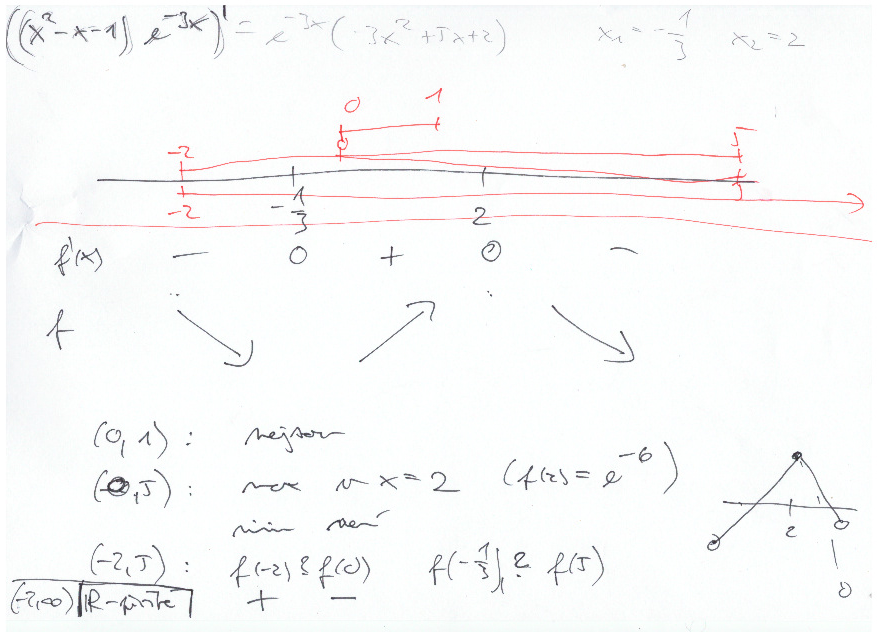 ((x²-x-1) e^{-3x})' = e^{-3x}(-3x²+5x+2)   x₁=-1/3   x₂=2
0   1
-2   0   5
-2   -1/3   2   5
f'(x)   -   0   +   0   -
f
(0, 1) : nejsou
(0, 5) : max v x=2   (f(2)=e^{-6})
min není
2
(-2, 5) : f(-2) ? f(0)   f(-1/3) ? f(5)
(-2,∞)   R-   +   -
0